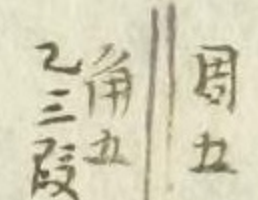 周五
角五
乙三段